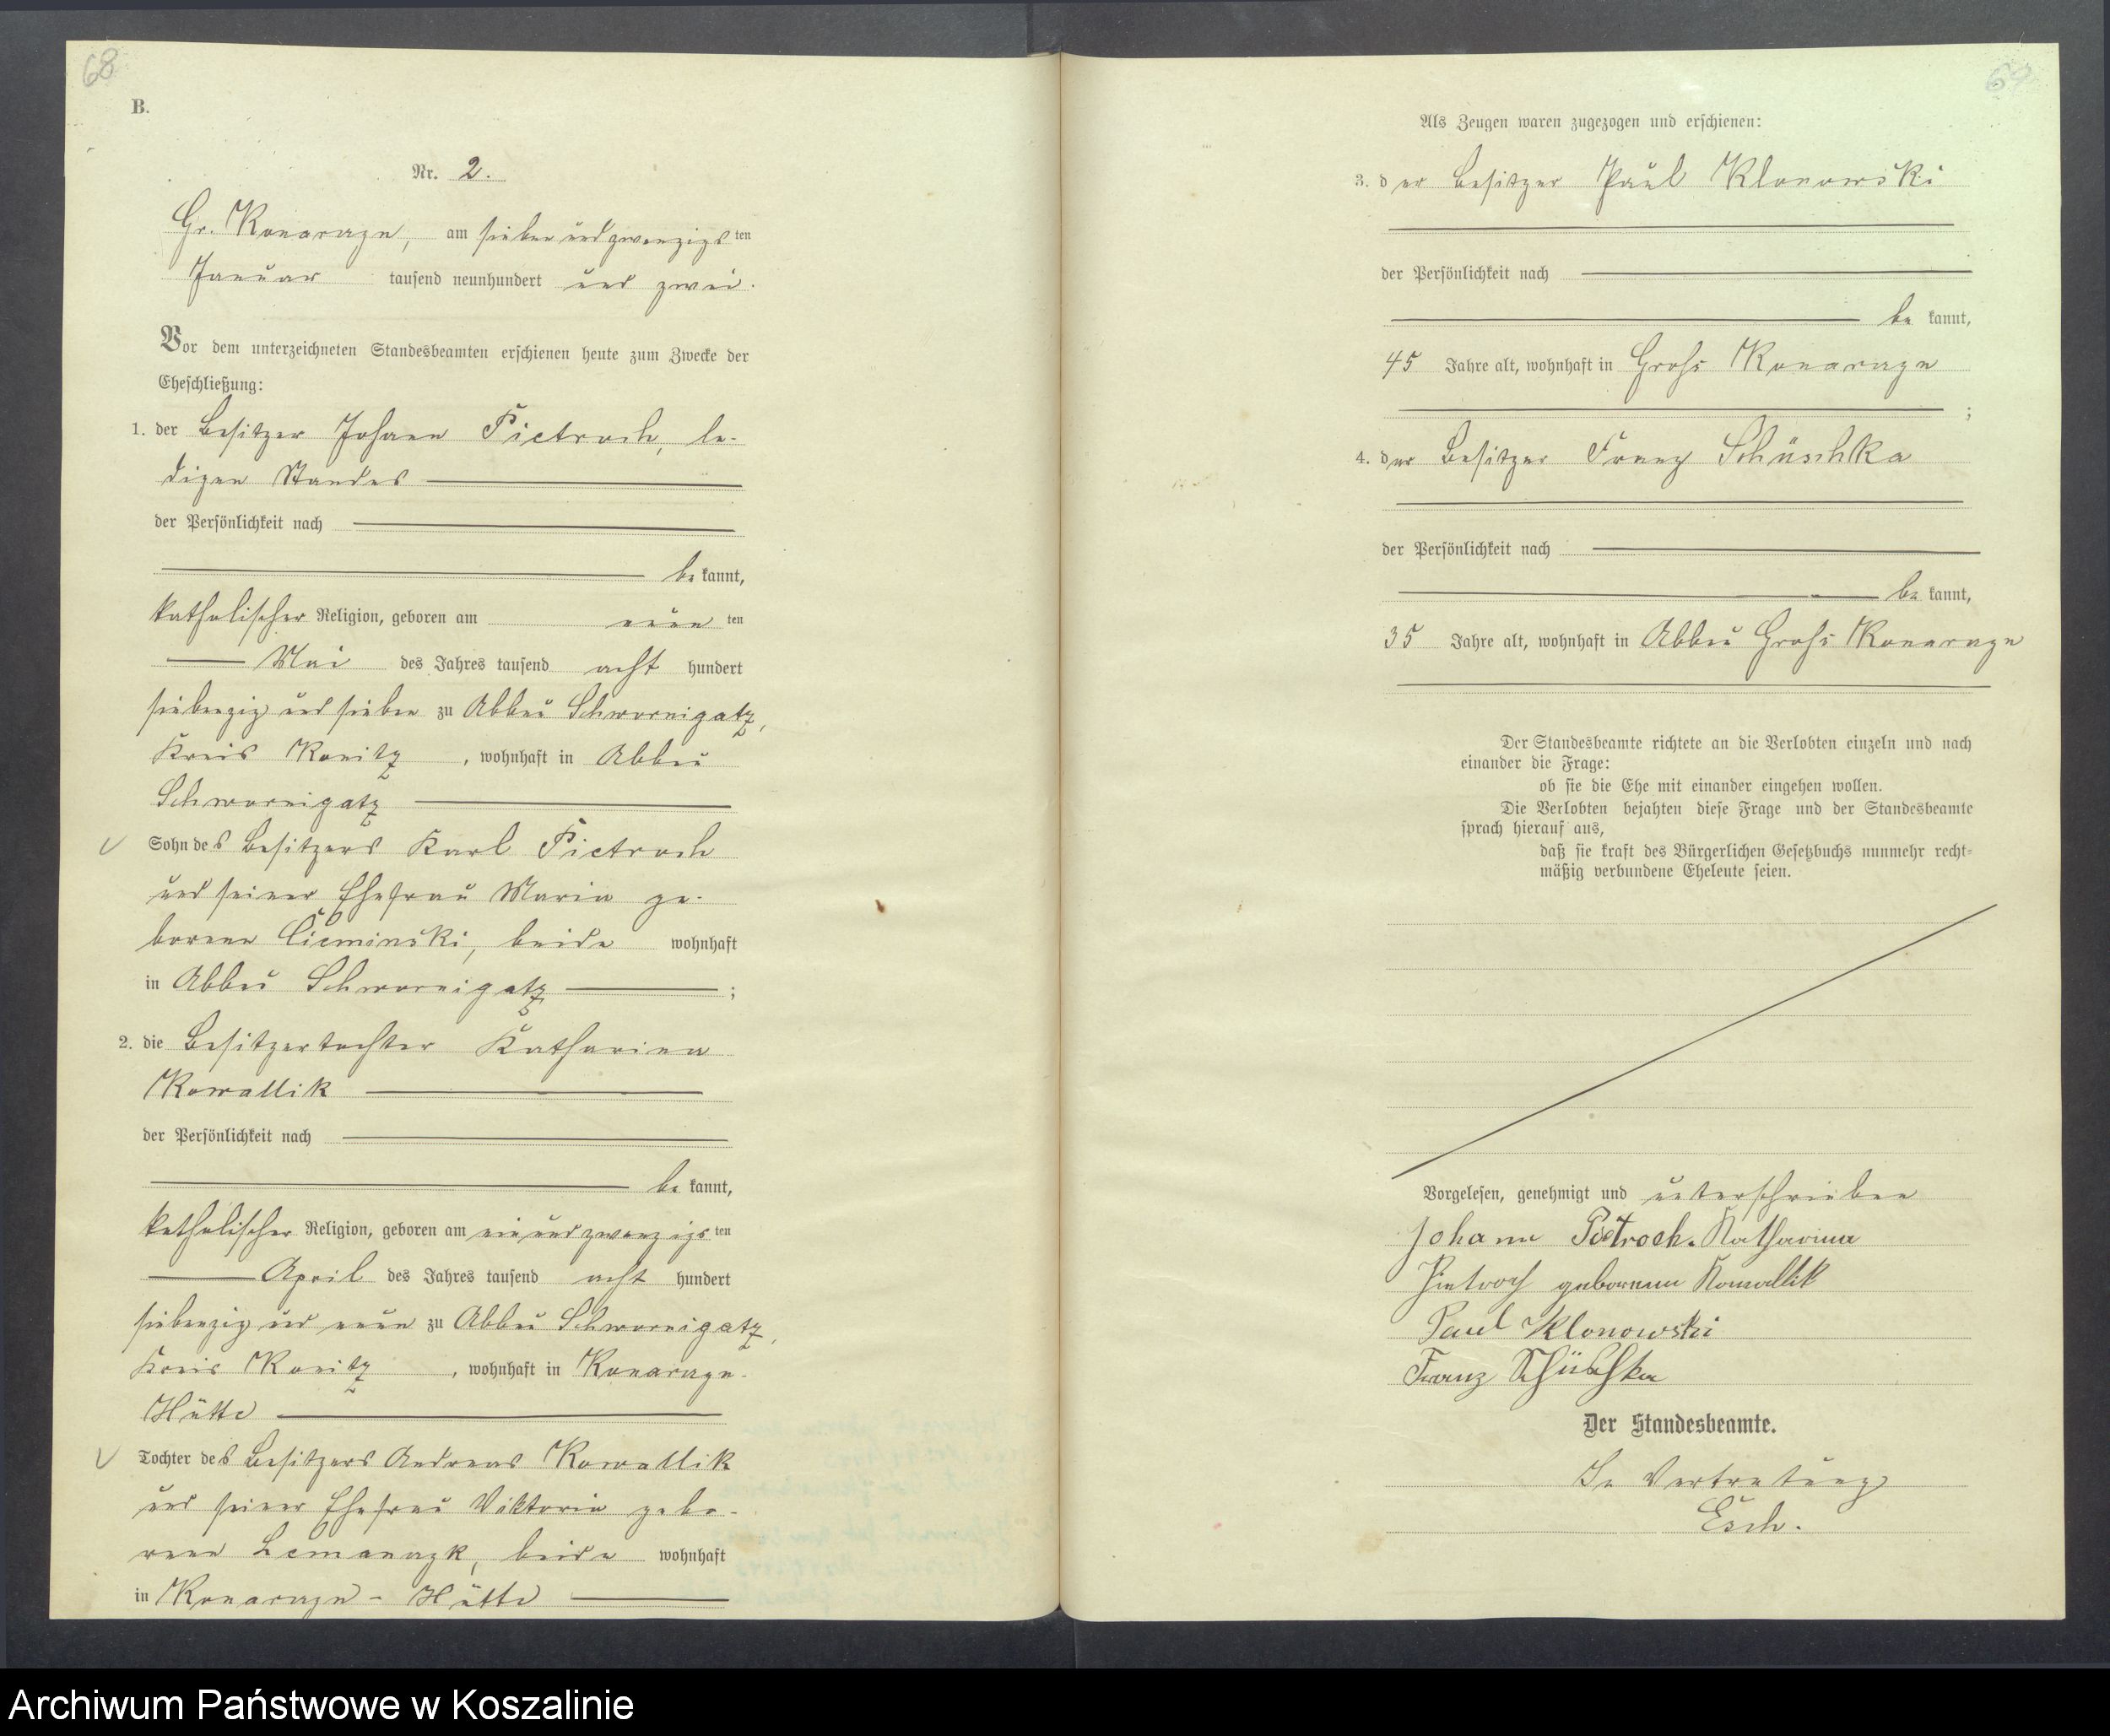 68
B.
Nr. 2.
Gr. Konarczyn, am sieben und zwanzigsten
Januar tausend neunhundert und zwei.
Vor dem unterzeichneten Standesbeamten erschienen heute zum Zwecke der
Eheschließung:
1. der Besitzer Johann Pietroch, le-
digen Standes
der Persönlichkeit nach
be kannt,
katholischer Religion, geboren am neun ten
Mai des Jahres tausend acht hundert
siebenzig und sieben zu Abbau Schwornigatz,
Kreis Konitz, wohnhaft in Abbau
Schwornigatz
Sohn des Besitzers Karl Pietroch
und seiner Ehefrau Maria ge-
borene Cieminski, beide wohnhaft
in Abbau Schwornigatz ;
2. die Besitzertochter Katharina
Kowallik
der Persönlichkeit nach
be kannt,
katholischer Religion, geboren am ein und zwanzigsten
April des Jahres tausend acht hundert
siebenzig und neun zu Abbau Schwornigatz,
Kreis Konitz, wohnhaft in Konarczyn-
Hütte
Tochter des Besitzers Andreas Kowallik
und seiner Ehefrau Viktoria gebo-
rene, beide wohnhaft
in Konarczyn - Hütte
69
Als Zeugen waren zugezogen und erschienen:
3. der Besitzer Paul Klonowski
der Persönlichkeit nach
be kannt,
45 Jahre alt, wohnhaft in Groß Konarczyn
;
4. der Besitzer Franz Schüschka
der Persönlichkeit nach
be kannt,
35 Jahre alt, wohnhaft in Abbau Groß Konarczyn
Der Standesbeamte richtete an die Verlobten einzeln und nach
einander die Frage:
ob sie die Ehe mit einander eingehen wollen.
Die Verlobten bejahten diese Frage und der Standesbeamte
sprach hierauf aus,
daß sie kraft des Bürgerlichen Gesetzbuchs nunmehr recht-
mäßig verbundene Eheleute seien.
Vorgelesen, genehmigt und unterschrieben
Johann Pietroch. Katharina
Pietroch geborenen Kowallik
Paul Klonowski
Franz Schüschka
Der Standesbeamte.
In Vertretung
Esch.
Archiwum Państwowe w Koszalinie